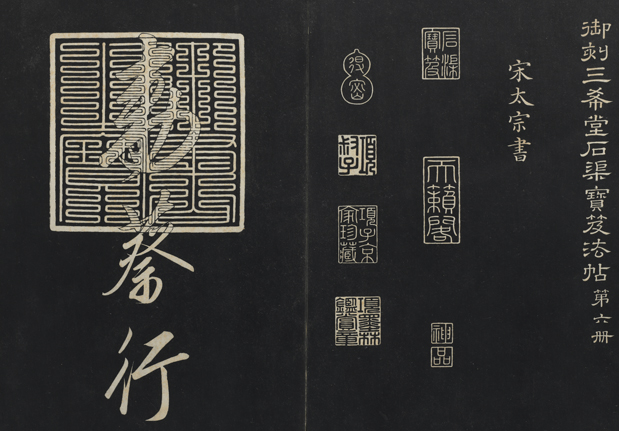 御刻三希堂石渠寶笈法帖第六册
宋太宗書
石渠寶笈
天籟閣
神品
項子京家珍藏
項墨林鑑賞章
敕蔡行